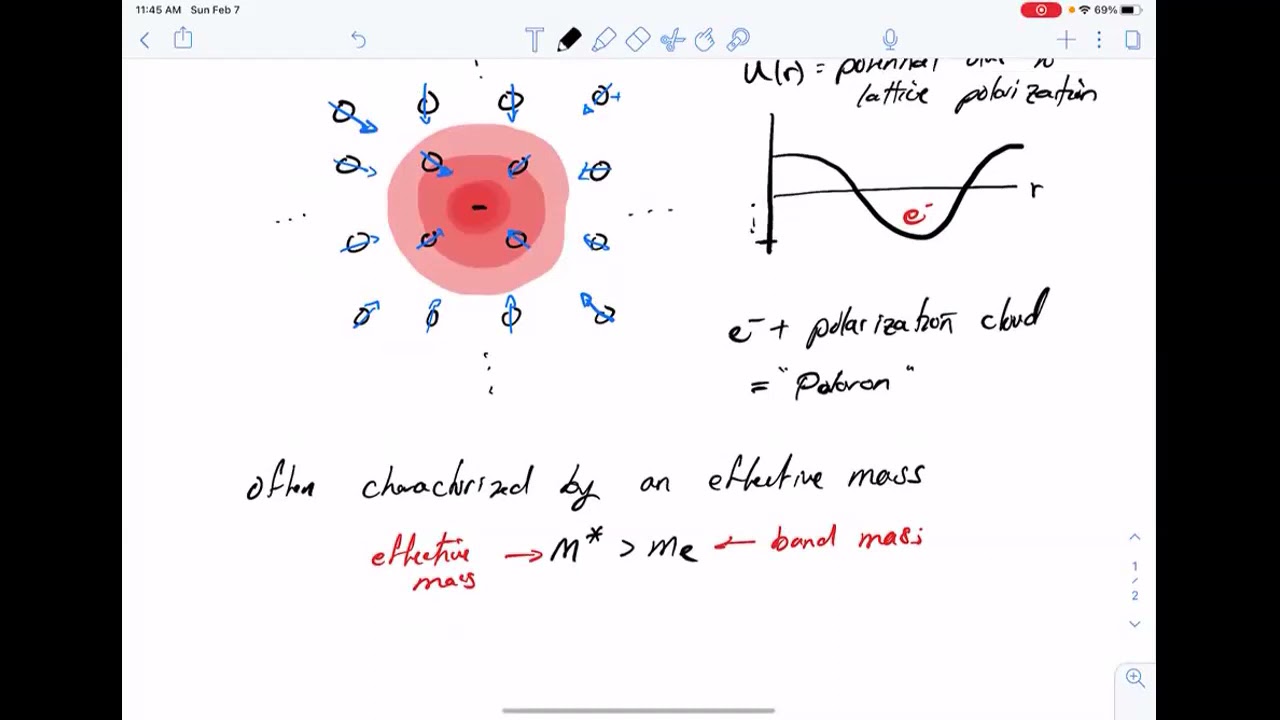 11:45 AM Sun Feb 7
69%
U(r) = potential due to
lattice polarization
r
e⁻
+
-
e⁻ + polarization cloud
= "Polaron"
often characterized by an effective mass
effective mass → m* > me ← band mass
1
/
2